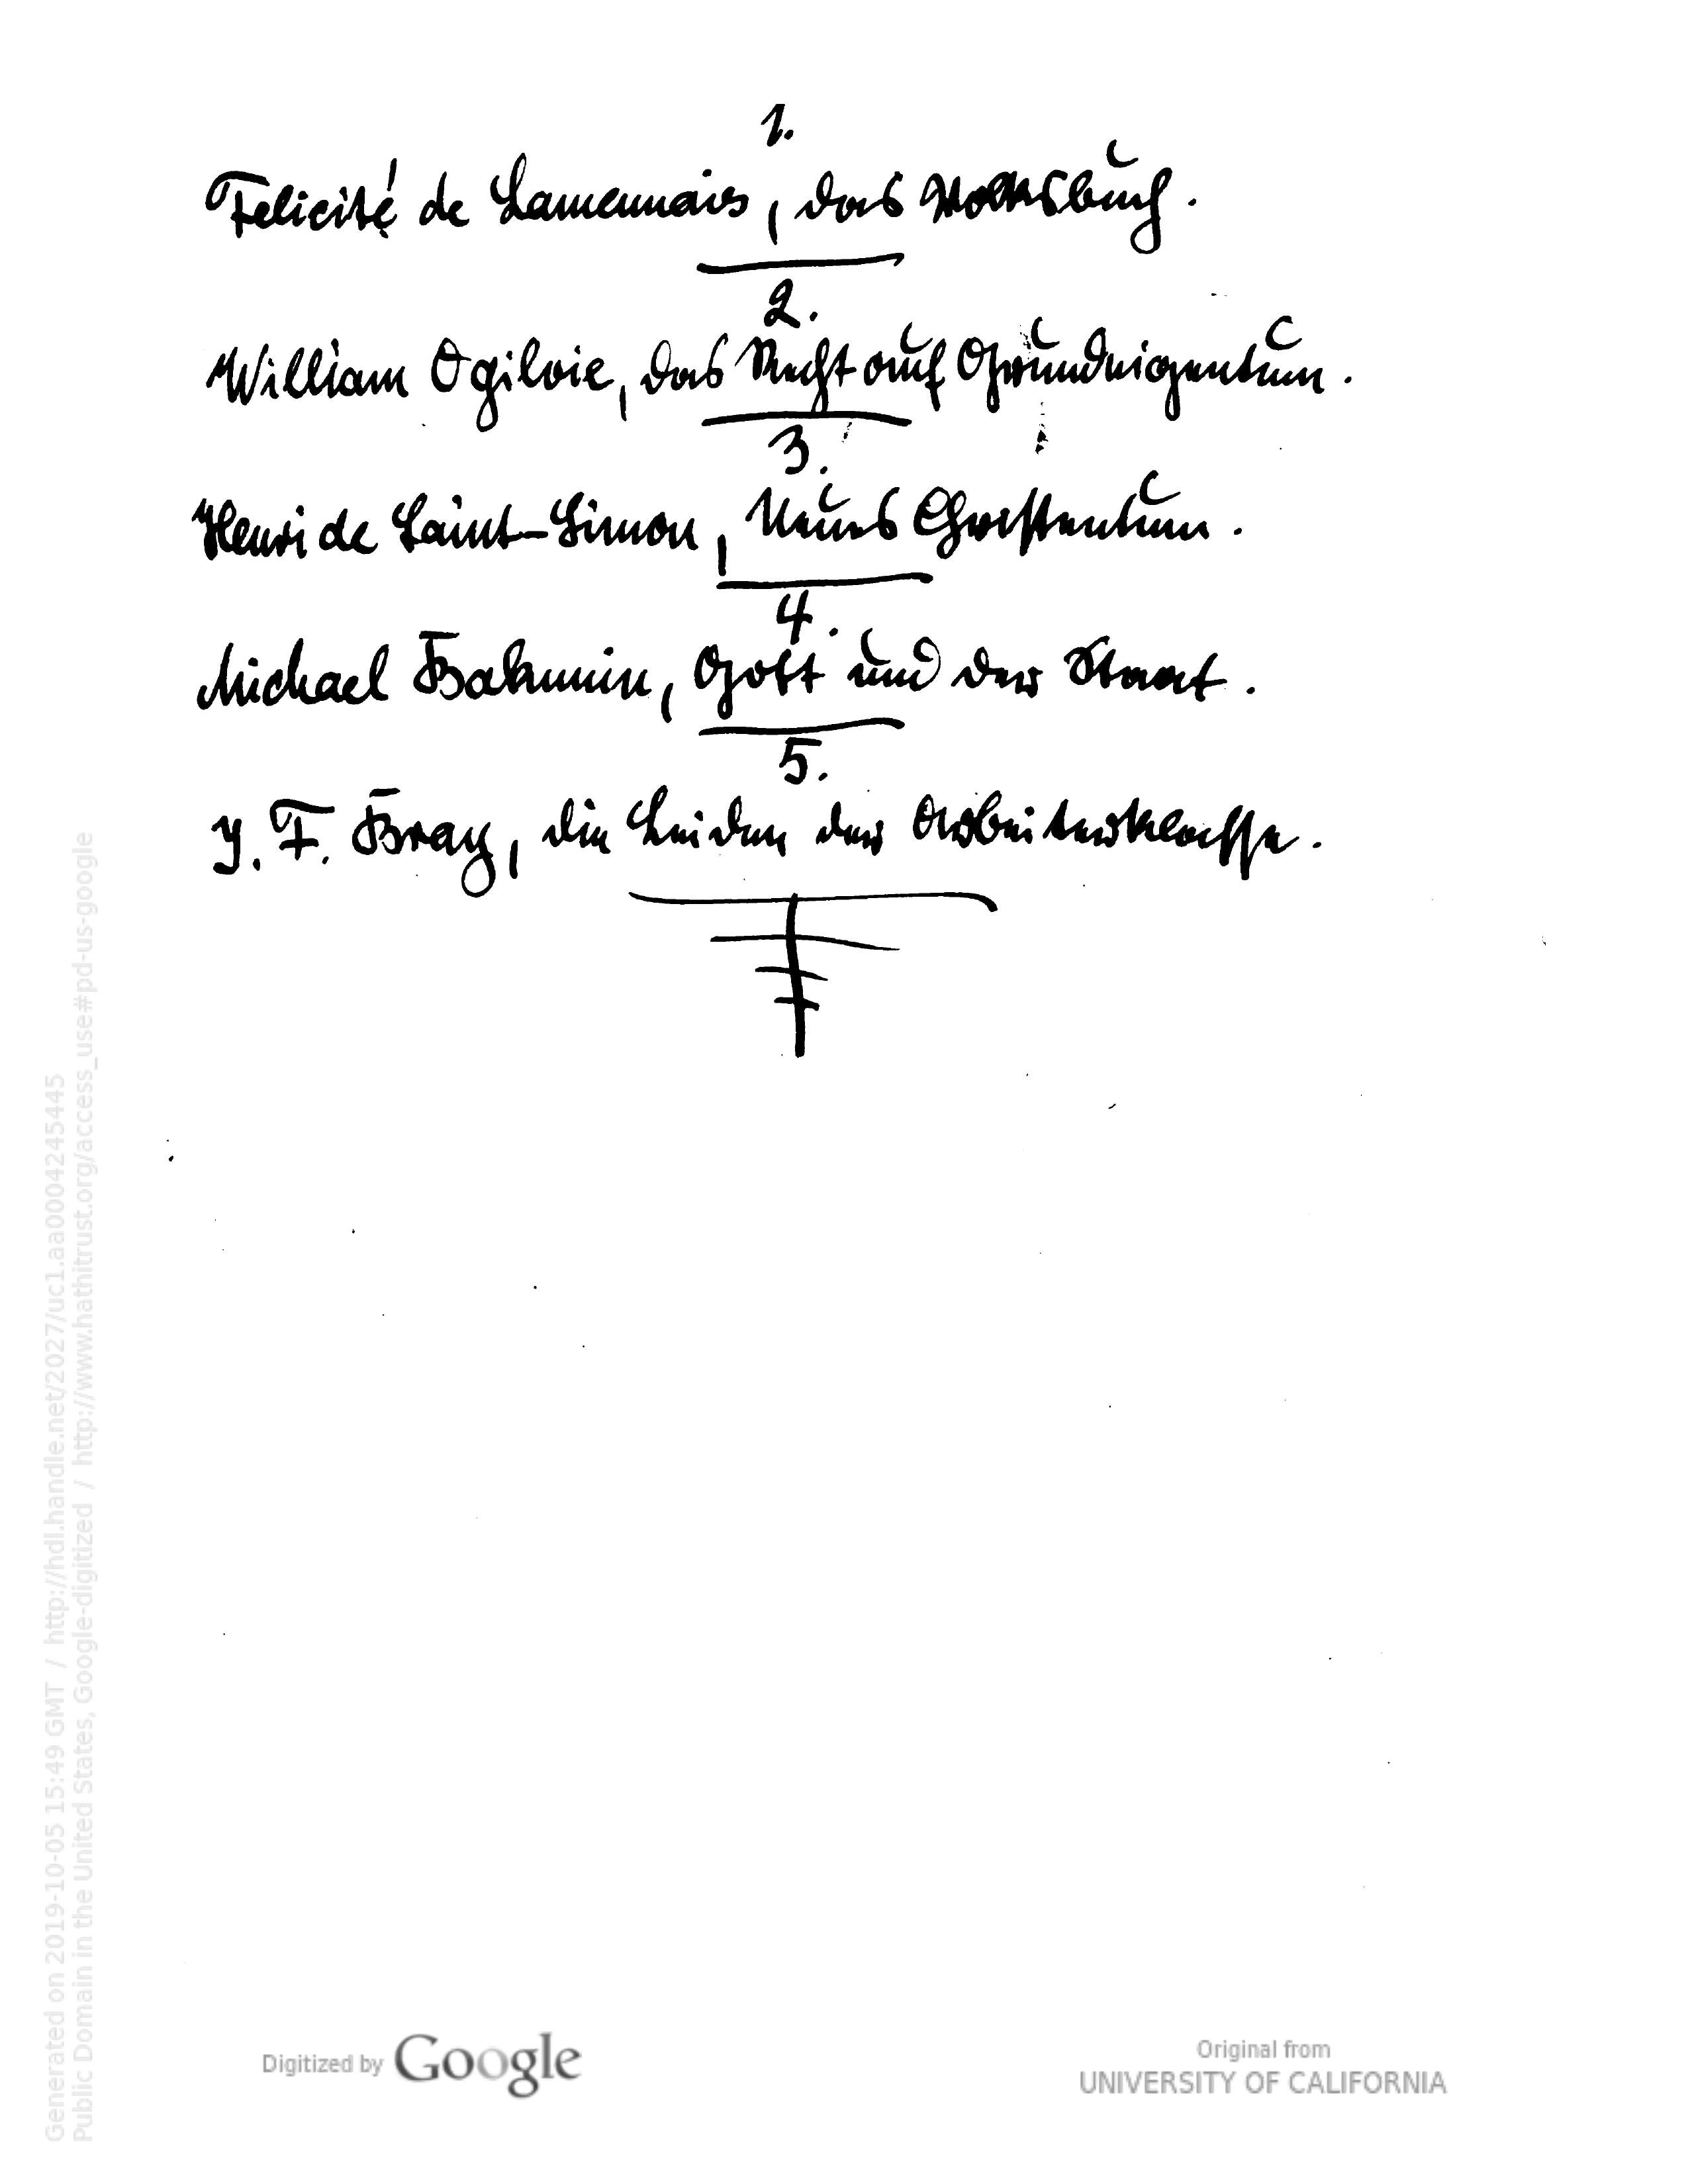 1.
Felicité de Lamennais, das Volksbuch.
2.
William Ogilvie, das Recht auf Grundeigentum.
3.
Henri de Saint-Simon, Neues Christentum.
4.
Michael Bakunin, Gott und der Staat.
5.
J. F. Bray, die Leiden der Arbeiterklasse.
Generated on 2019-10-05 15:49 GMT / http://hdl.handle.net/2027/uc1.aa0004245445
Public Domain in the United States, Google-digitized / http://www.hathitrust.org/access_use#pd-us-google
Digitized by Google
Original from
UNIVERSITY OF CALIFORNIA